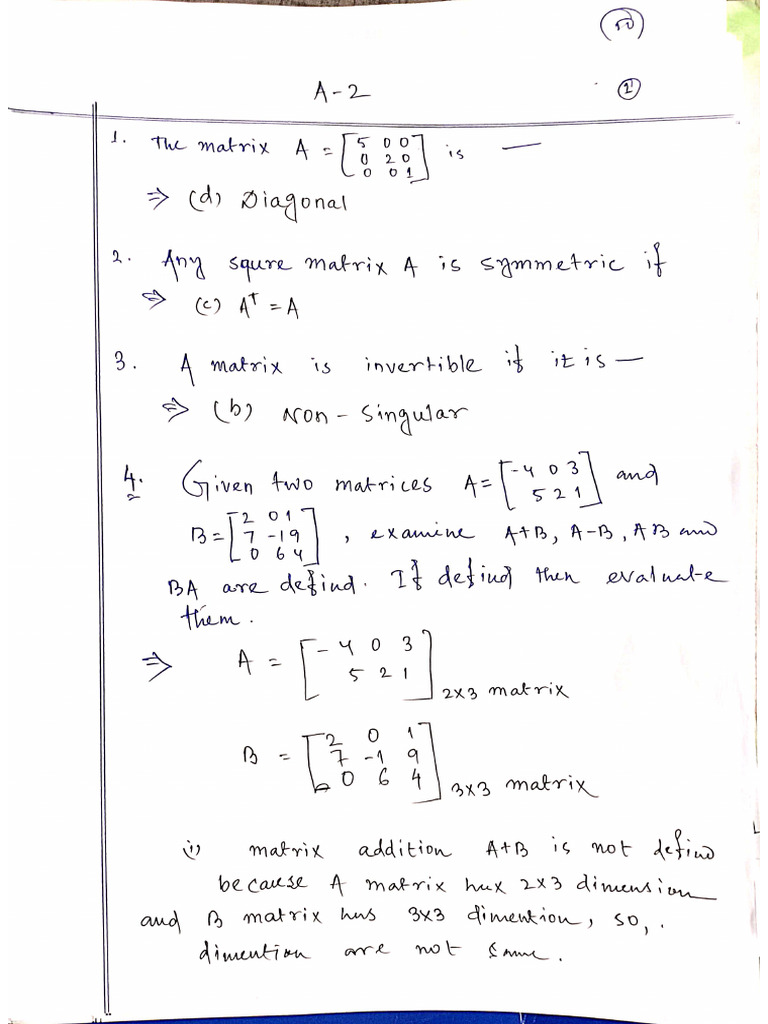 A-2
1. The matrix A = [5 0 0
0 2 0
0 0 1] is —
⇒ (d) Diagonal
2. Any squre matrix A is symmetric if
⇒ (c) Aᵀ = A
3. A matrix is invertible if it is —
⇒ (b) Non - Singular
4. Given two matrices A = [-4 0 3
5 2 1] and
B = [2 0 1
7 -1 9
0 6 4] , examine A+B, A-B, AB and
BA are defind. If defind then evaluate
them.
⇒ A = [-4 0 3
5 2 1] 2x3 matrix
B = [2 0 1
7 -1 9
0 6 4] 3x3 matrix
i) matrix addition A+B is not defind
because A matrix hux 2x3 dimension
and B matrix has 3x3 dimention, so, .
dimention are not same.